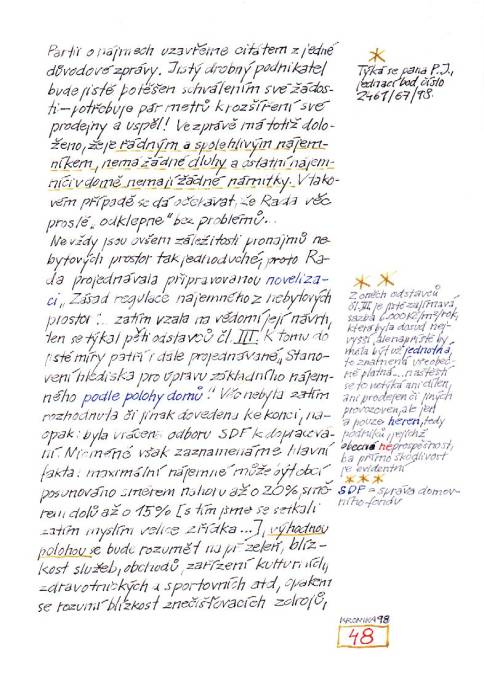 Partii o nájmech uzavřeme citátem z jedné
důvodové zprávy. Jistý drobný podnikatel
bude jistě potěšen schválením své žádos-
ti – potřebuje pár metrů k rozšíření své
prodejny a uspěl! Ve zprávě má totiž dolo-
ženo, že je řádným a spolehlivým nájem-
níkem, nemá žádné dluhy a ostatní nájem-
níci v domě nemají žádné námitky. V tako-
vém případě se dá očekávat, že Rada věc
prostě „odklepne" bez problémů...
Ne vždy jsou ovšem záležitosti pronájmů ne-
bytových prostor tak jednoduché, proto Ra-
da projednávala připravovanou novelizа-
ci „Zásad regulace nájemného z nebytových
prostor"... zatím vzala na vědomí její návrh,
ten se týkal pěti odstavců čl. III. K tomu do
jisté míry patří i dále projednávané „Stano-
vení hlediska pro úpravu základního nájem-
ného podle polohy domů". Věc nebyla zatím
rozhodnuta či jinak dovedena ke konci, na-
opak: byla vrácena odboru SDF k dopracová-
ní. Nicméně však zaznamenáme hlavní
fakta: maximální nájemné může být oběí
posunováno směrem nahoru až o 20%, smě-
rem dolů až o 15% [s tím jsme se setkali
zatím myslím velice zřídka...], výhodnou
polohou se bude rozumět např. zeleň, blíz-
kost služeb, obchodů, zařízení kulturních,
zdravotnických a sportovních atd, opakem
se rozumí blízkost znečišťovacích zdrojů,
*
Týká se pana P. J.,
jednací bod číslo
2461/67/98.
* *
Z oněch odstavců
čl. III. je jistě zajímavá
sazba 6.000 Kč/m²/rok,
která byla dosud nej-
vyšší, ale napříště by
měla být už jednotná,
to znamená všeobec-
ně platná... naštěstí
se to netýká ani dílen,
ani prodejen či jiných
provozoven, ale jen
a pouze heren, tedy
podniků, jejichž
obecná neprospěšnost,
ba přímo škodlivost
je evidentní
* * *
SDF = správa domov-
ního fondu
KRONIKA 98
48